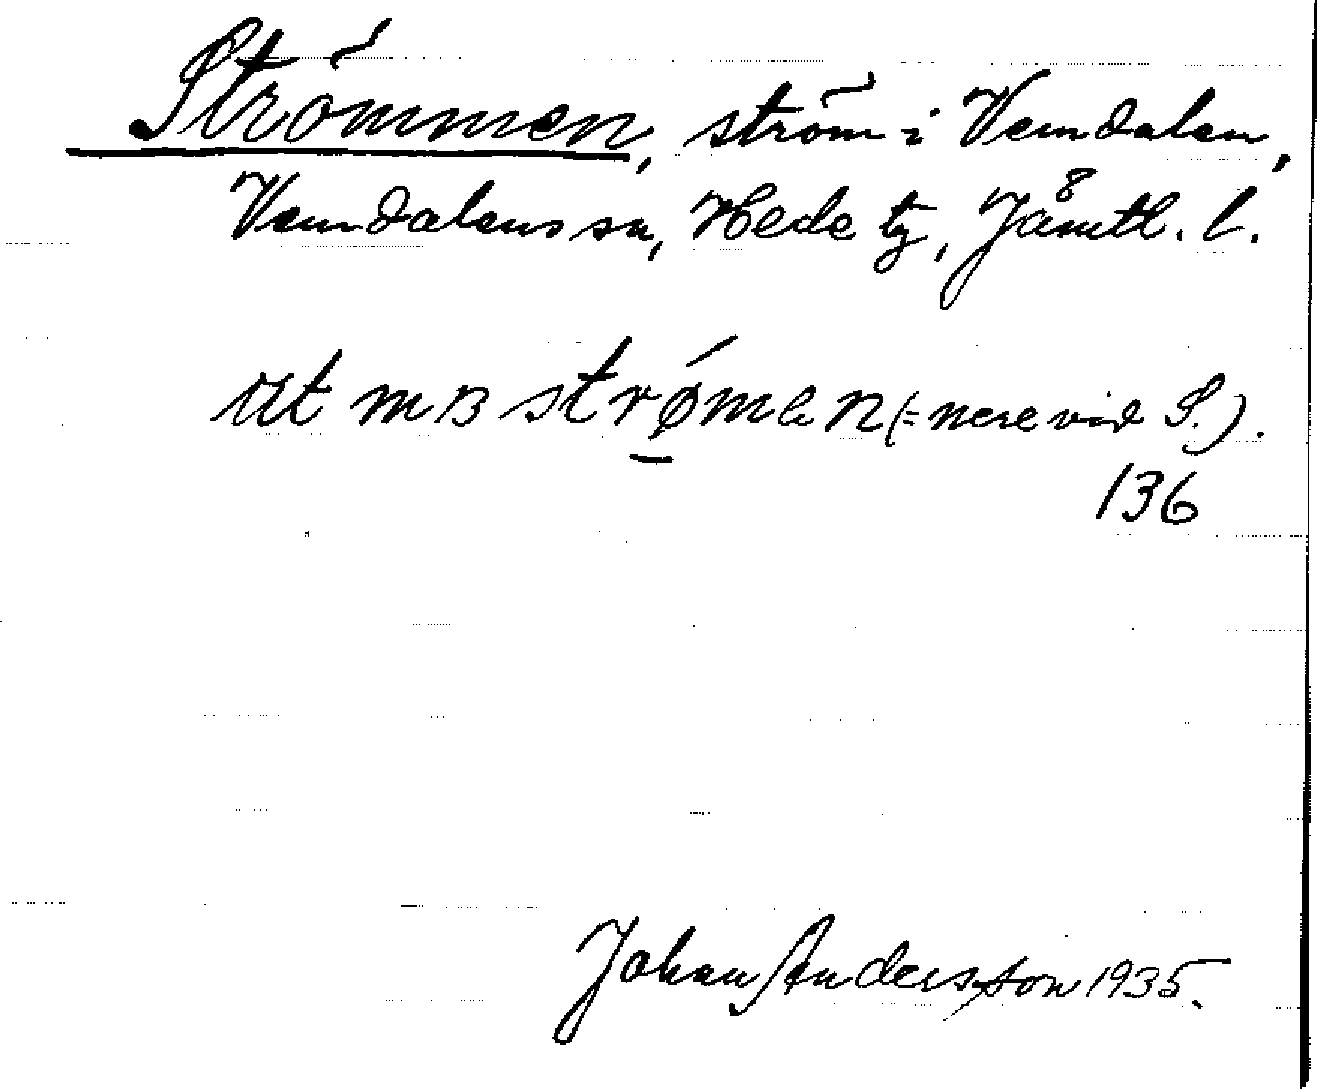 Strömmen, ström i Vemdalen,
Vemdalens sn, Hede tg, Jämtl. l.
strømen (= nere vid S.).
136
Johan Andersson 1935.